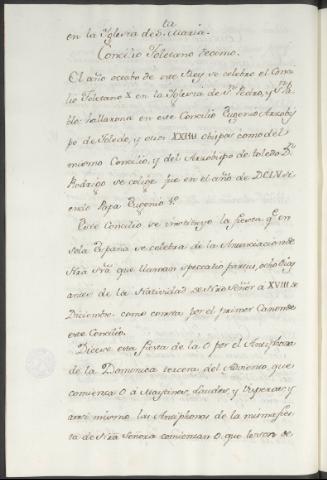 en la Yglesia de S.ta Maria.
Concilio Toletano decimo.
El año octabo de este Rey se celebro el Conci
lio Toletano X en la Yglesia de S.n Pedro, y S.n Pa
blo. hallaronse en este Concilio Eugenio Arzobis
po de Toledo, y otros XXIIII obispos como del
mismo Concilio, y del Arzobispo de toledo D.n
Rodrigo se colige fue en el año de DCLV si
endo Papa Eugenio 1º
Este Concilio se instituyo la fiesta q.e en
sola España se celebra de la Anunciacion de
Nra Srâ que llaman partus, ocho dias
antes de la Natividad de Nro Señor a XVIII de
Diciembre como consta por el primer Canon de
este Concilio.
Dicese esta fiesta de la O por el Antiphona
de la Dominica tercera del Adviento que
comienza O á Maytines, Laudes, y Visperas, y
ansi mismo las Antiphonas de la misma fies
ta de Nrâ Señora comienzan O. que